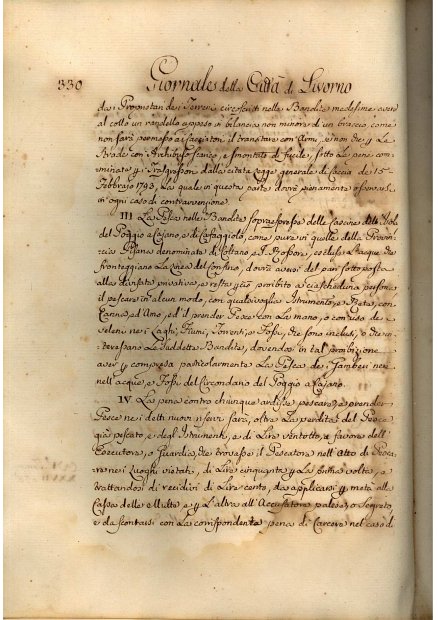 330 Giornale della Città di Livorno
dai Proprietari dei Terreni circoscritti nelle Bandite medesime avere
al collo un randello appeso in bilancia non minore di un braccio, come
non sarà permesso ai Cacciatori il transitare con Armi, se non che per Le
Strade con Archibuso scarico, e smontato di fucile, sotto Le pene com-
minate ai Trasgressori dalla citata Legge generale di Caccia de 13.
Febbraio 1793, La quale in questa parte dovrà pienamente osservarsi
in ogni caso di contravvenzione.
III La Pesca nelle Bandite sopraespresse delle Cascine dell'Isole
del Poggio a Cajano, e di Cafaggiolo, come pure in quelle della Provin-
cia Pisana denominate di Coltano, e S. Rossore, escluse L'acque che
fronteggiano La Linea del Confino, dovrà aversi del pari sottoposta
alla divisata privativa, e resta perciò proibito a ciascheduna persona
il pescare in alcun modo, con qualsivoglia Istrumento, e Rete, con
Canna, ed Amo, ed il prender Pesce con Le mani, o con uso de
veleni nei Laghi, Fiumi, Torrenti, e Fossi, che sono inclusi, o che in-
tersecano Le suddette Bandite, dovendosi in tal proibizione
aver per compresa particolarmente La Pesca dei Gamberi neri
nell'acque, e Fossi del Circondario del Poggio a Cajano.
IV La pena contro chiunque ardisse pescare, e prender
Pesce nei detti nuovi riservi sarà, oltre La perdita del Pesce
già pescato, e degl'Istrumenti, e di Lire Ventotto, a favore dell'
Executore, o Guardia, che trovasse il Pescatore nell'Atto di Pesca-
re nei Luoghi vietati, di Lire cinquanta per La prima volta, e
trattandosi di recidivi di Lire cento, da applicarsi per metà alla
Cassa delle Multe e per L'altra all'Accusatore palese, o Segreto,
e da scontarsi con La corrispondente pena di Carcere nel caso di